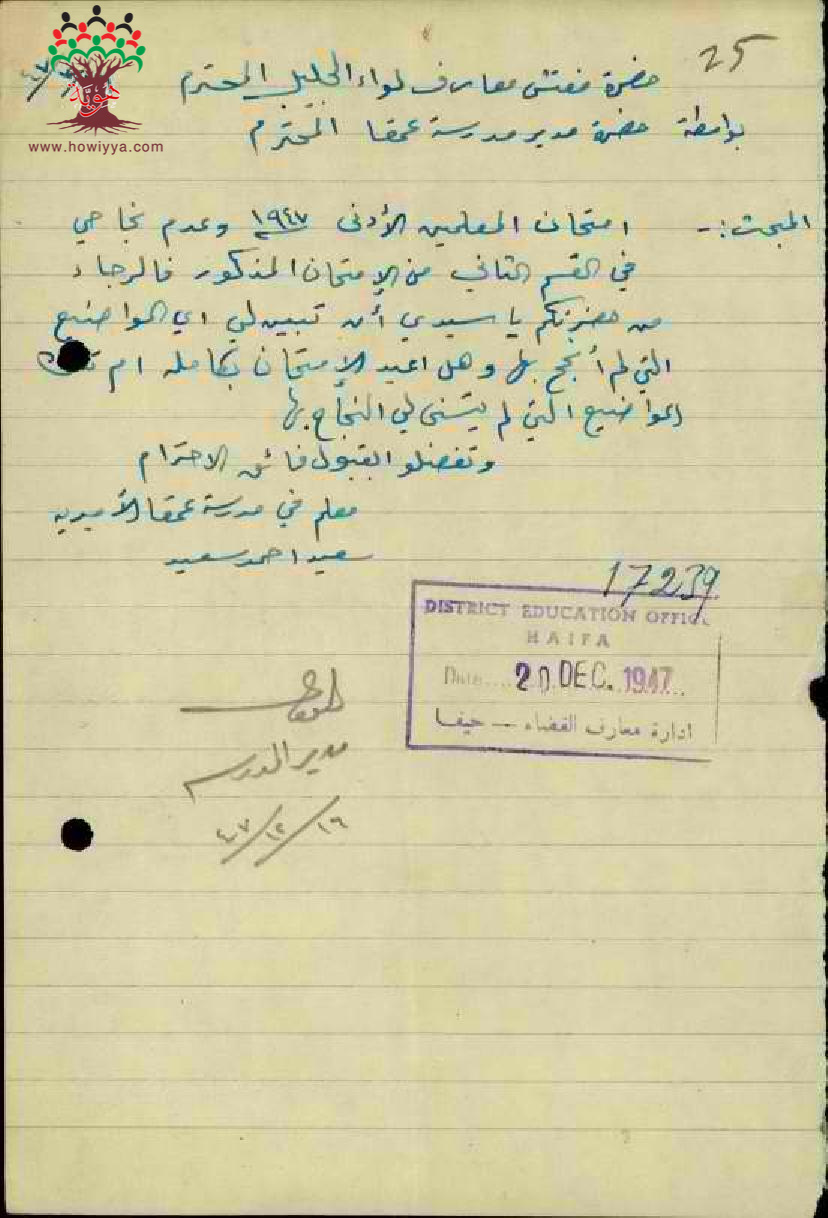 25
حضرة مفتش معارف لواء الجليل المحترم
بواسطة حضرة مدير مدرسة عمقا المحترم
المبحث :- امتحان المعلمين الأدنى ١٩٤٧ وعدم نجاحي
في القسم الثاني من الامتحان المذكور فالرجاء
من حضرتكم يا سيدي أن تبين لي اي المواضيع
التي لم أنجح بها وهل اعيد الامتحان بكامله ام تلك
المواضيع التي لم يتسنى لي النجاح بها
وتفضلو القبول فائق الاحترام
معلم في مدرسة عمقا الأميرية
سعيد احمد سعيد
17239
DISTRICT EDUCATION OFFICE
HAIFA
Date.... 20 DEC. 1947...
ادارة معارف القضاء — حيفا
مدير المدرسة
١٦/١٢/٤٧
هوية
www.howiyya.com